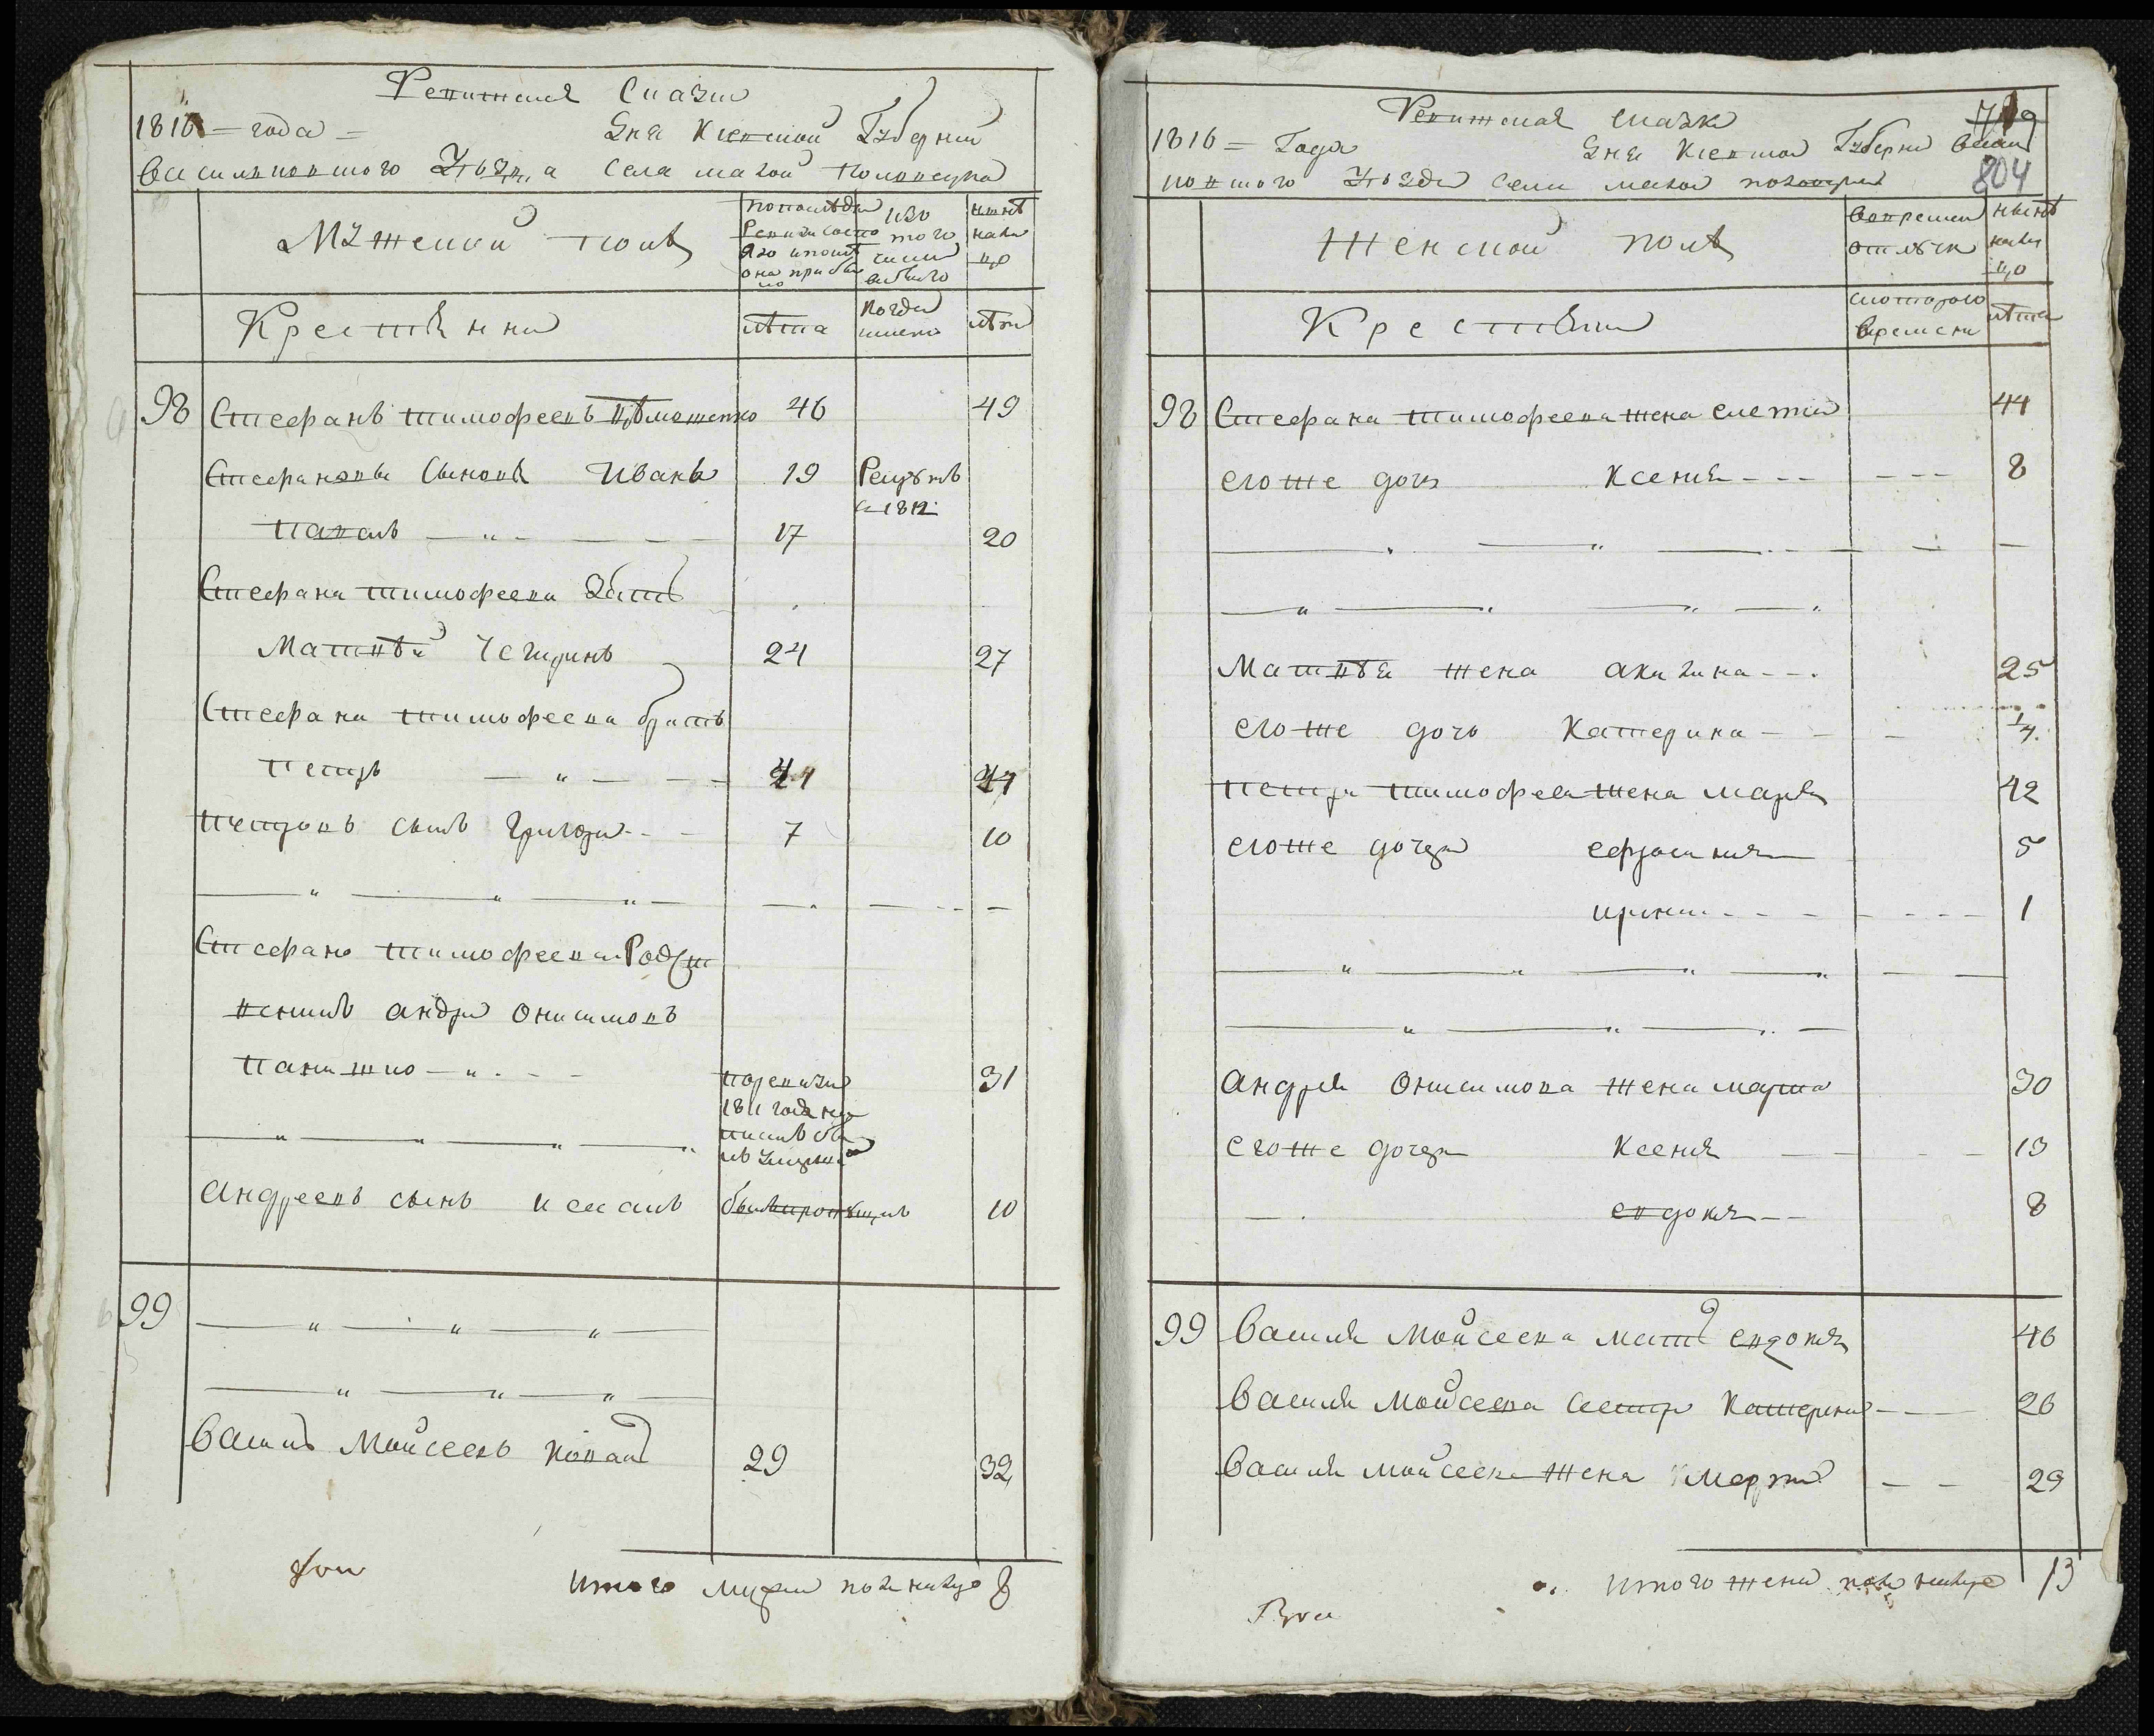 Ревижская Сказка
1816 = года = Дня Киевской Губернии
Васильковского Уезда Села малой Половецкой
Мужеской полъ
по последней ревизии состояло и после она прибыло
изо того числа выбыло
ныне налицо
Крестьянни
лета
когда имено
лета
98 Стефанъ тимофеевъ 46 49
Стефановы Сыновя Иванъ 19 Рекрутъ с 1812
павелъ — „ — — — 17 20
Стефана тимофеева Зать
Матвѣй Чегиринъ 24 27
Стефана тимофеева братъ
петръ — „ — — — 44 47
петровъ сынъ григори - - 7 10
Стефана тимофеева Родст
венникъ андри Онисимовъ
панашко — „ - - - по ревизии 1811 года 31
андреевъ сынъ исаакъ былъ пропущенъ 10
99
Васили Мойсеевъ коваль 29 32
Итого мужеска пола налицо 8
719
804
Ревижская сказка
1816 = Года Дня Киевской Губернии Василь
ковского Уезда Села малой половецкой
Женской полъ
Во временной отлучке
ныне налицо
Крестьяни
с которого времени
лета
98 Стефана тимофеева жена 44
егоже дочь Ксения - - - 8
Матвѣя жена акилина - - - 25
егоже дочь Катерина - - - 1/4
петра тимофеева жена маря 42
егоже дочери ефросиния 5
ирина - - - - 1
Андрея Онисимова жена марта 30
егоже дочери Ксения 13
евдокия - - 8
99 Василя Мойсеева мать евдокия 46
Василя Мойсеева сестра Катерина - — 26
Василя мойсеева жена 29
Итого женска пола налице 13